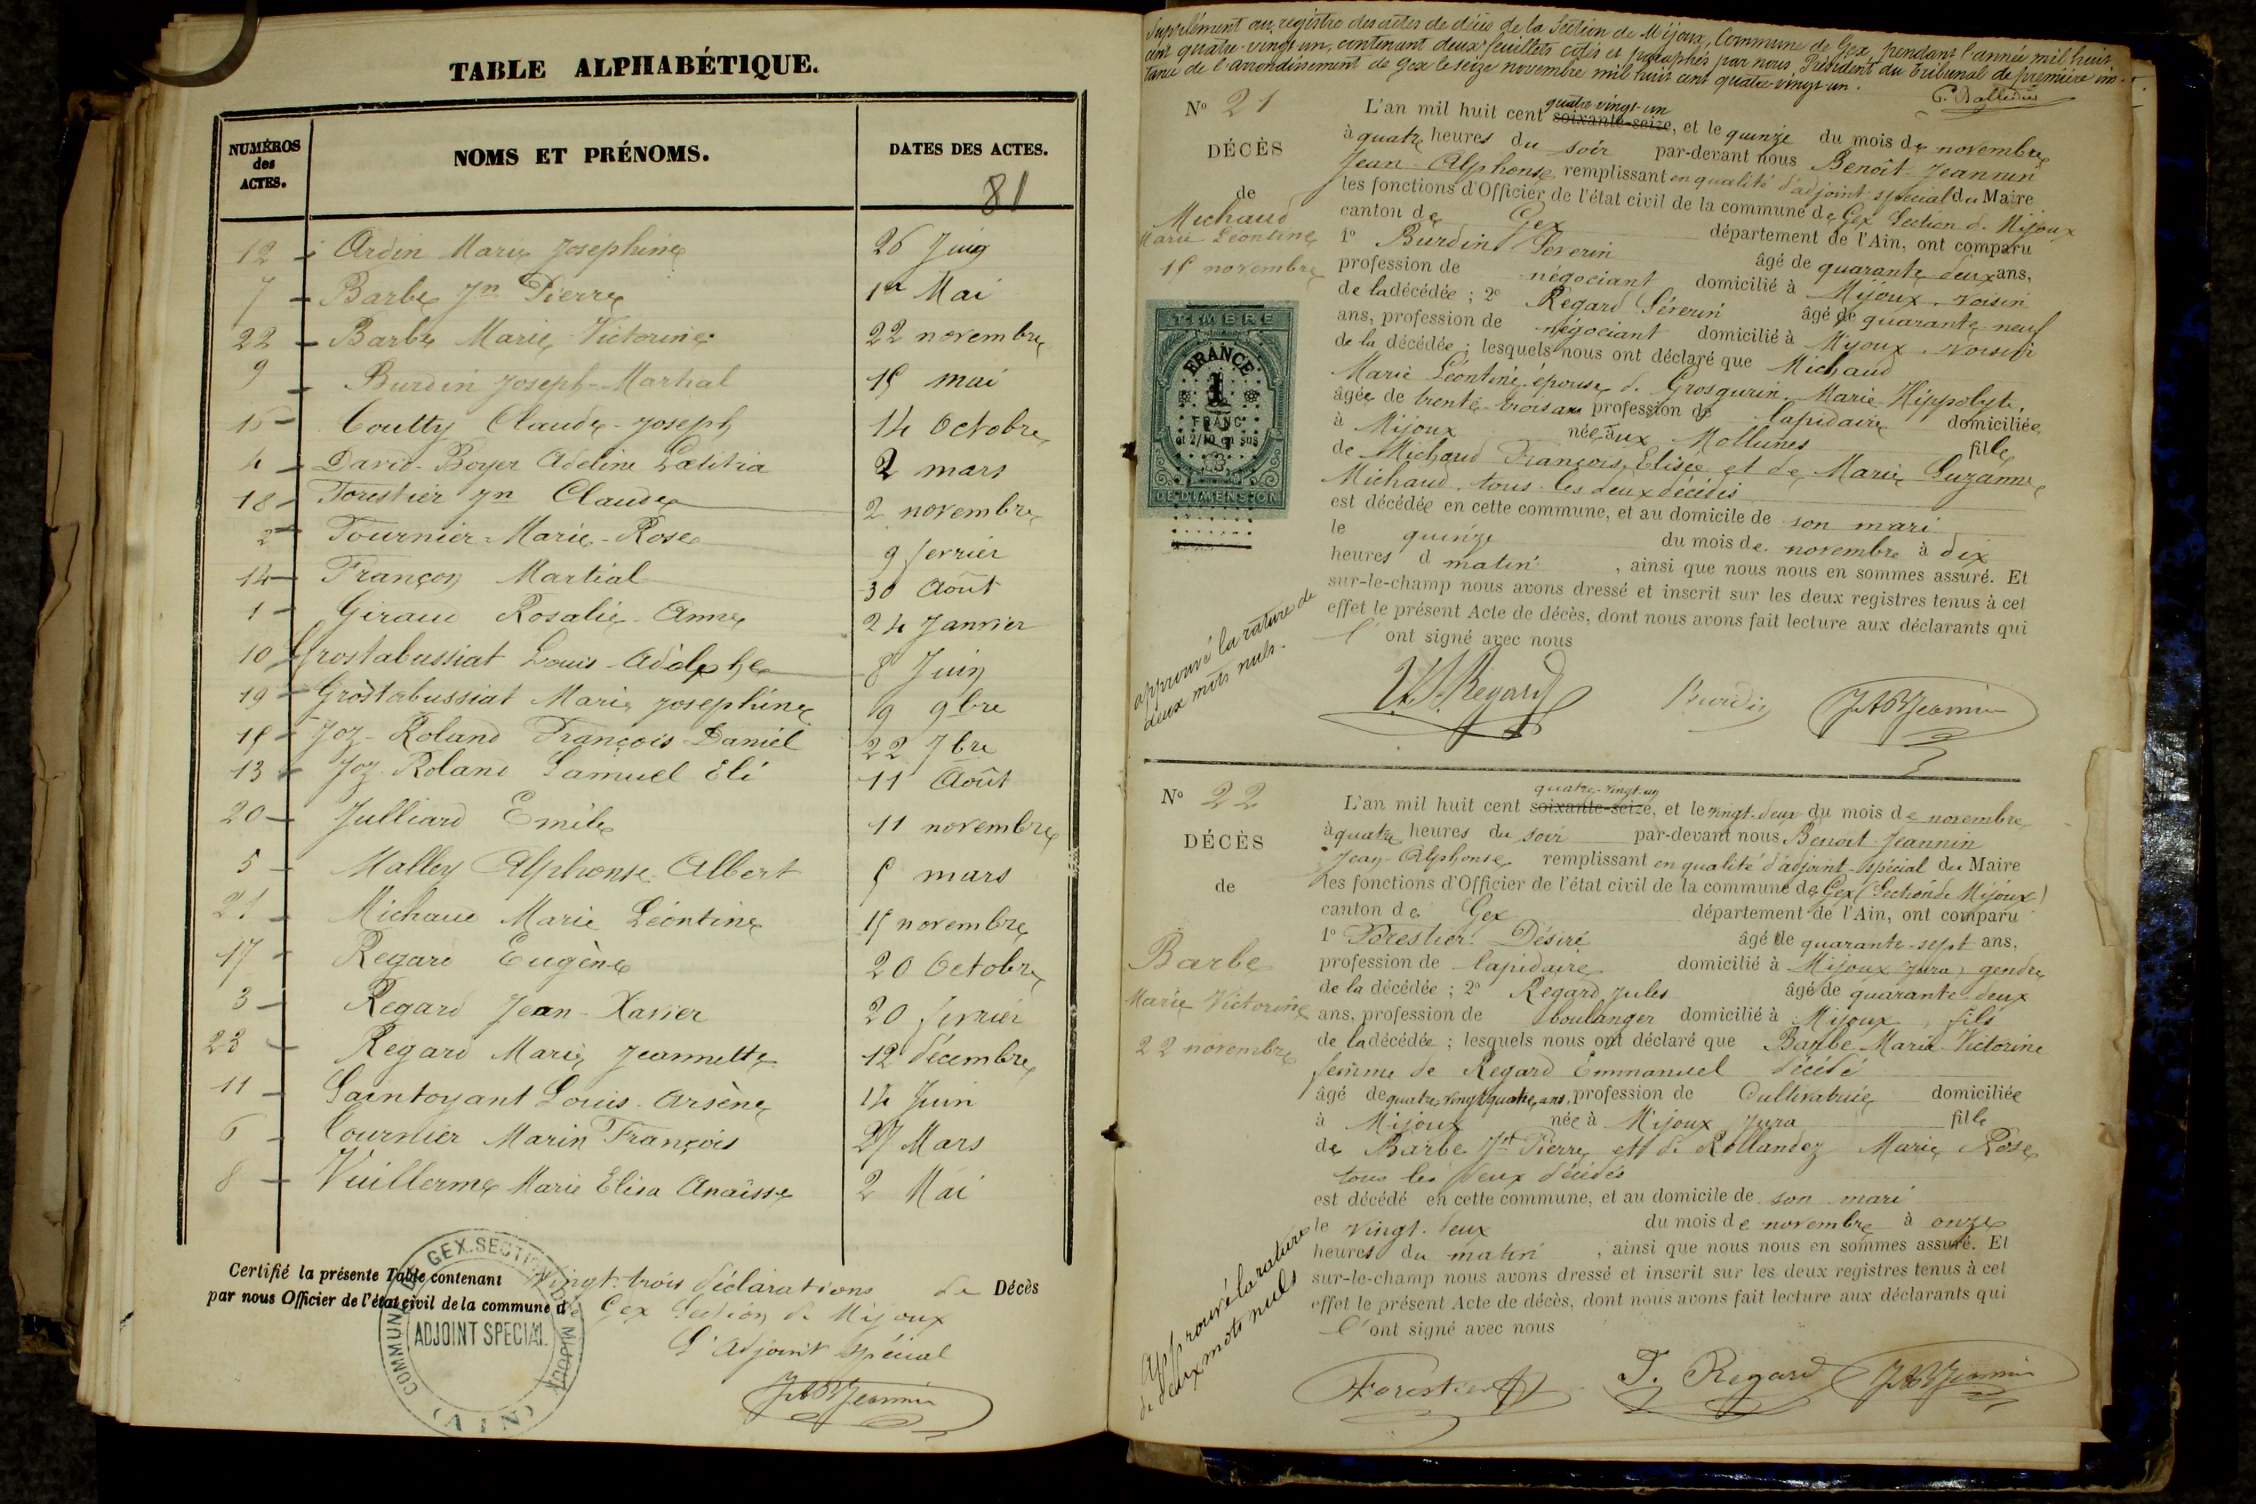 TABLE ALPHABÉTIQUE.
NUMÉROS des ACTES. NOMS ET PRÉNOMS. DATES DES ACTES.
81
12 Ardin Marie Josephine 26 Juin
7 Barbe Jn Pierre 1er Mai
22 Barbe Marie Victorine 22 novembre
9 Burdin Joseph-Martial 15 mai
16 Coutty Claude-Joseph 14 Octobre
4 David-Boyer Adeline Lœtitia 2 mars
18 Forestier Jn Claude 2 novembre
2 Fournier-Marie-Rose 9 février
14 Françon Martial 30 Août
1 Giraud Rosalie-Anne 24 Janvier
10 Grostabussiat Louis-Adolphe 8 Juin
19 Grostabussiat Marie Josephine 9 9bre
15 Joz-Roland François Daniel 22 7bre
13 Joz-Roland Samuel Eli 11 Août
20 Julliard Emile 11 novembre
5 Malley Alphonse Albert 5 mars
21 Michaud Marie Léontine 15 novembre
17 Regard Eugène 20 Octobre
3 Regard Jean-Xavier 20 février
23 Regard Marie Jeannette 12 décembre
11 Saintoyant Louis-Arsène 14 Juin
6 Tournier Marin François 27 Mars
8 Vuillerme Marie Elisa Anaïsse 2 Mai
Certifié la présente Table contenant vingt-trois déclarations de Décès
par nous Officier de l'état civil de la commune d Gex Section de Mijoux
L'Adjoint spécial
JABJeannin
COMMUNE DE GEX. SECTION DE MIJOUX
ADJOINT SPECIAL
(AIN)
Supplément au registre des actes de décès de la Section de Mijoux, Commune de Gex, pendant l'année mil huit
cent quatre-vingt un, contenant deux feuillets cotés et paraphés par nous Président du Tribunal de première ins-
tance de l'arrondissement de Gex le seize novembre mil huit cent quatre-vingt-un.
No 21
DÉCÈS
de
Michaud
Marie Léontine
15 novembre
TIMBRE
FRANCE
1
FRANC
et 2/10 en sus
DE DIMENSION
approuvé la rature de
deux mots nuls.
quatre-vingt-un
L'an mil huit cent soixante-seize, et le quinze du mois de novembre
à quatre heures du soir par-devant nous Benoît-Jeannin
Jean-Alphonse remplissant en qualité d'adjoint-spécial du Maire
les fonctions d'Officier de l'état civil de la commune de Gex Section de Mijoux
canton de Gex département de l'Ain, ont comparu
1o Burdin Séverin âgé de quarante deux ans,
profession de négociant domicilié à Mijoux, voisin
de la décédée ; 2o Regard Séverin âgé de quarante-neuf
ans, profession de négociant domicilié à Mijoux, voisin
de la décédée ; lesquels nous ont déclaré que Michaud
Marie Léontine épouse de Grosgurin Marie Hippolyte,
âgée de trente-trois ans profession de lapidaire domiciliée
à Mijoux née aux Mollunes fille
de Michaud François Elisée et de Marie Suzanne
Michaud tous les deux décédés
est décédée en cette commune, et au domicile de son mari
le quinze du mois de novembre à dix
heures d matin , ainsi que nous nous en sommes assuré. Et
sur-le-champ nous avons dressé et inscrit sur les deux registres tenus à cet
effet le présent Acte de décès, dont nous avons fait lecture aux déclarants qui
l'ont signé avec nous
Regard Burdin JABJeannin
No 22
DÉCÈS
de
Barbe
Marie Victorine
22 novembre
Approuvé la rature
de deux mots nuls
quatre-vingt-un
L'an mil huit cent soixante-seize, et le vingt-deux du mois de novembre
à quatre heures du soir par-devant nous Benoit-Jeannin
Jean-Alphonse remplissant en qualité d'adjoint-spécial du Maire
les fonctions d'Officier de l'état civil de la commune de Gex (Section de Mijoux)
canton de Gex département de l'Ain, ont comparu
1o Forestier Désiré âgé de quarante-sept ans,
profession de lapidaire domicilié à Mijoux Jura, gendre
de la décédée ; 2o Regard Jules âgé de quarante-deux
ans, profession de boulanger domicilié à Mijoux, fils
de la décédée ; lesquels nous ont déclaré que Barbe Marie-Victorine
femme de Regard Emmanuel décédé
âgé de quatre-vingt quatre ans, profession de Cultivatrice domiciliée
à Mijoux née à Mijoux Jura fille
de Barbe Jn Pierre et de Rollandez Marie Rose
tous les deux décédés
est décédé en cette commune, et au domicile de son mari
le vingt-deux du mois de novembre à onze
heures du matin , ainsi que nous nous en sommes assuré. Et
sur-le-champ nous avons dressé et inscrit sur les deux registres tenus à cet
effet le présent Acte de décès, dont nous avons fait lecture aux déclarants qui
l'ont signé avec nous
Forestier J. Regard JABJeannin